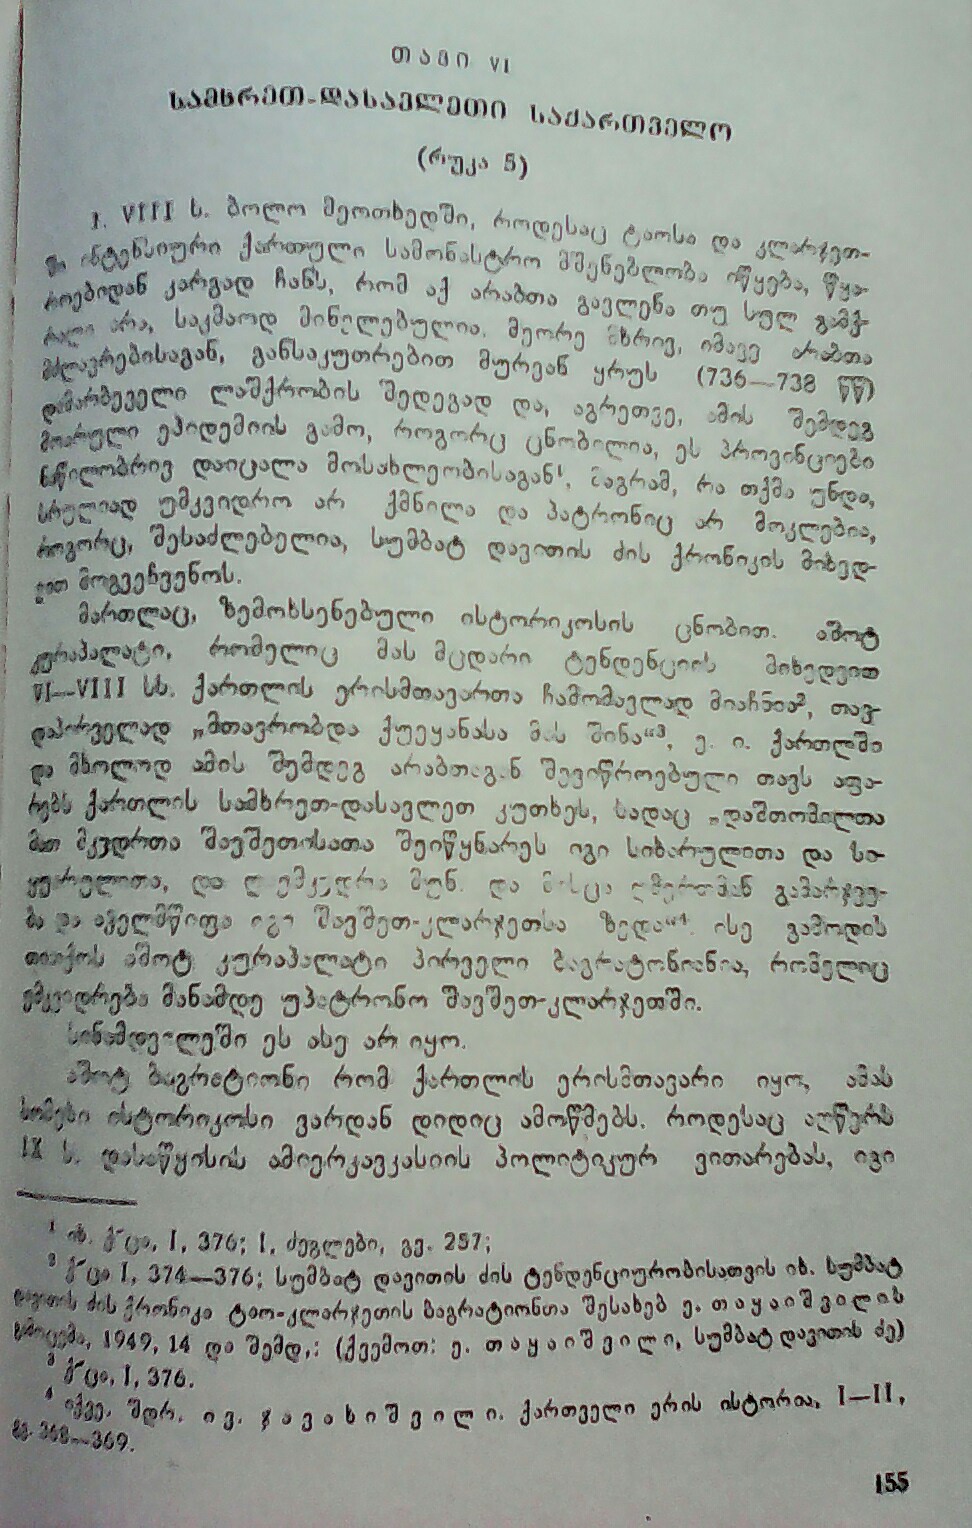 თავი VI
სამხრეთ-დასავლეთი საქართველო
(რუკა 5)
I. VIII ს. ბოლო მეოთხედში, როდესაც ტაოსა და კლარჯეთ-
ში ინტენსიური ქართული სამონასტრო მშენებლობა იწყება, წყა-
როებიდან კარგად ჩანს, რომ აქ არაბთა გავლენა თუ სულ გამქ-
რალი არა, საკმაოდ მინელებულია. მეორე მხრივ, იმავე არაბთა
მძლავრებისაგან, განსაკუთრებით მურვან ყრუს (736—738 წწ)
დამარბეველი ლაშქრობის შედეგად და, აგრეთვე, ამის შემდეგ
მოარული ეპიდემიის გამო, როგორც ცნობილია, ეს პროვინციები
ნაწილობრივ დაიცალა მოსახლეობისაგან¹. მაგრამ, რა თქმა უნდა,
სრულიად უმკვიდრო არ ქმნილა და პატრონიც არ მოკლებია,
როგორც, შესაძლებელია, სუმბატ დავითის ძის ქრონიკის მიხედ-
ვით მოგვეჩვენოს.
მართლაც, ზემოხსენებული ისტორიკოსის ცნობით. აშოტ
კურაპალატი, რომელიც მას მცდარი ტენდენციის მიხედვით
VI—VIII სს. ქართლის ერისმთავართა ჩამომავლად მიაჩნია², თავ-
დაპირველად „მთავრობდა ქუეყანასა მას შინა“³, ე. ი. ქართლში
და მხოლოდ ამის შემდეგ არაბთაგან შევიწროებული თავს აფა-
რებს ქართლის სამხრეთ-დასავლეთ კუთხეს, სადაც „დაშთომილთა
მათ მკჳდრთა შავშეთისათა შეიწყნარეს იგი სიხარულითა და სი-
ყვარულითა, და დაემკჳდრა მუნ. და მისცა ღმერთმან გამარჯვე-
ბა და აჴელმწიფა იგი შავშეთ-კლარჯეთსა ზედა“⁴. ისე გამოდის
თითქოს აშოტ კურაპალატი პირველი ბაგრატონიანია, რომელიც
ემკვიდრება მანამდე უპატრონო შავშეთ-კლარჯეთში.
სინამდვილეში ეს ასე არ იყო.
აშოტ ბაგრატიონი რომ ქართლის ერისმთავარი იყო, ამას
სომეხი ისტორიკოსი ვარდან დიდიც ამოწმებს. როდესაც აღწერს
IX ს. დასაწყისის ამიერკავკასიის პოლიტიკურ ვითარებას, იგი
¹ იხ. ქ˜ცა, I, 376; I, ძეგლები, გვ. 257;
² ქ˜ცა I, 374—376; სუმბატ დავითის ძის ტენდენციურობისათვის იხ. სუმბატ
დავითის ძის ქრონიკა ტაო-კლარჯეთის ბაგრატიონთა შესახებ ე. თაყაიშვილის
გამოცემა, 1949, 14 და შემდ,: (ქვემოთ: ე. თაყაიშვილი, სუმბატ დავითის ძე)
³ ქ˜ცა, I, 376.
⁴ იქვე. შდრ. ივ. ჯავახიშვილი. ქართველი ერის ისტორია, I—II,
გვ. 368—369.
155